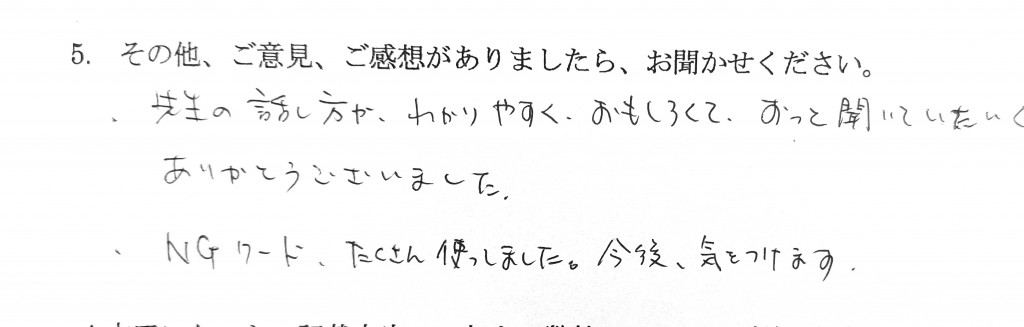 5. その他、ご意見、ご感想がありましたら、お聞かせください。
、先生の話し方が、わかりやすく、おもしろくて、ずっと聞いていたいく
ありがとうございました。
、NGワード、たくさん使っしました。今後、気をつけます.